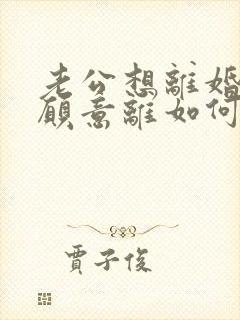 老公想離婚
願意離如何
賈子俊